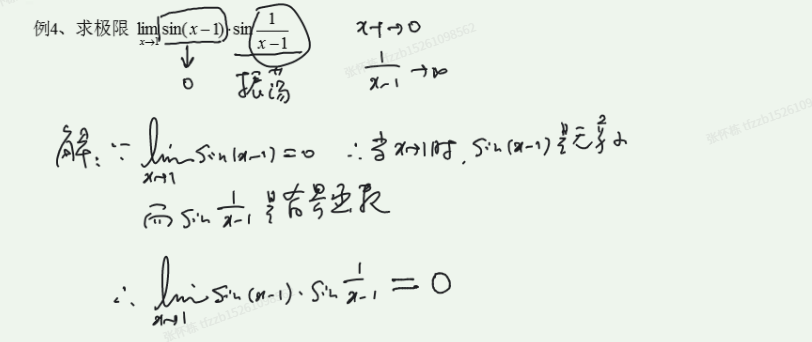 例4、求极限 lim x→1 sin(x−1)·sin 1/(x−1)
x-1→0
1/(x-1) →∞
0
振荡
解: ∵ lim x→1 sin(x-1)=0 ∴当x→1时, sin(x-1)是无穷小
而 sin 1/(x-1) 是有界函数
∴ lim x→1 sin(x-1)·sin 1/(x-1) = 0
张怀栋 tfzzb15261098562